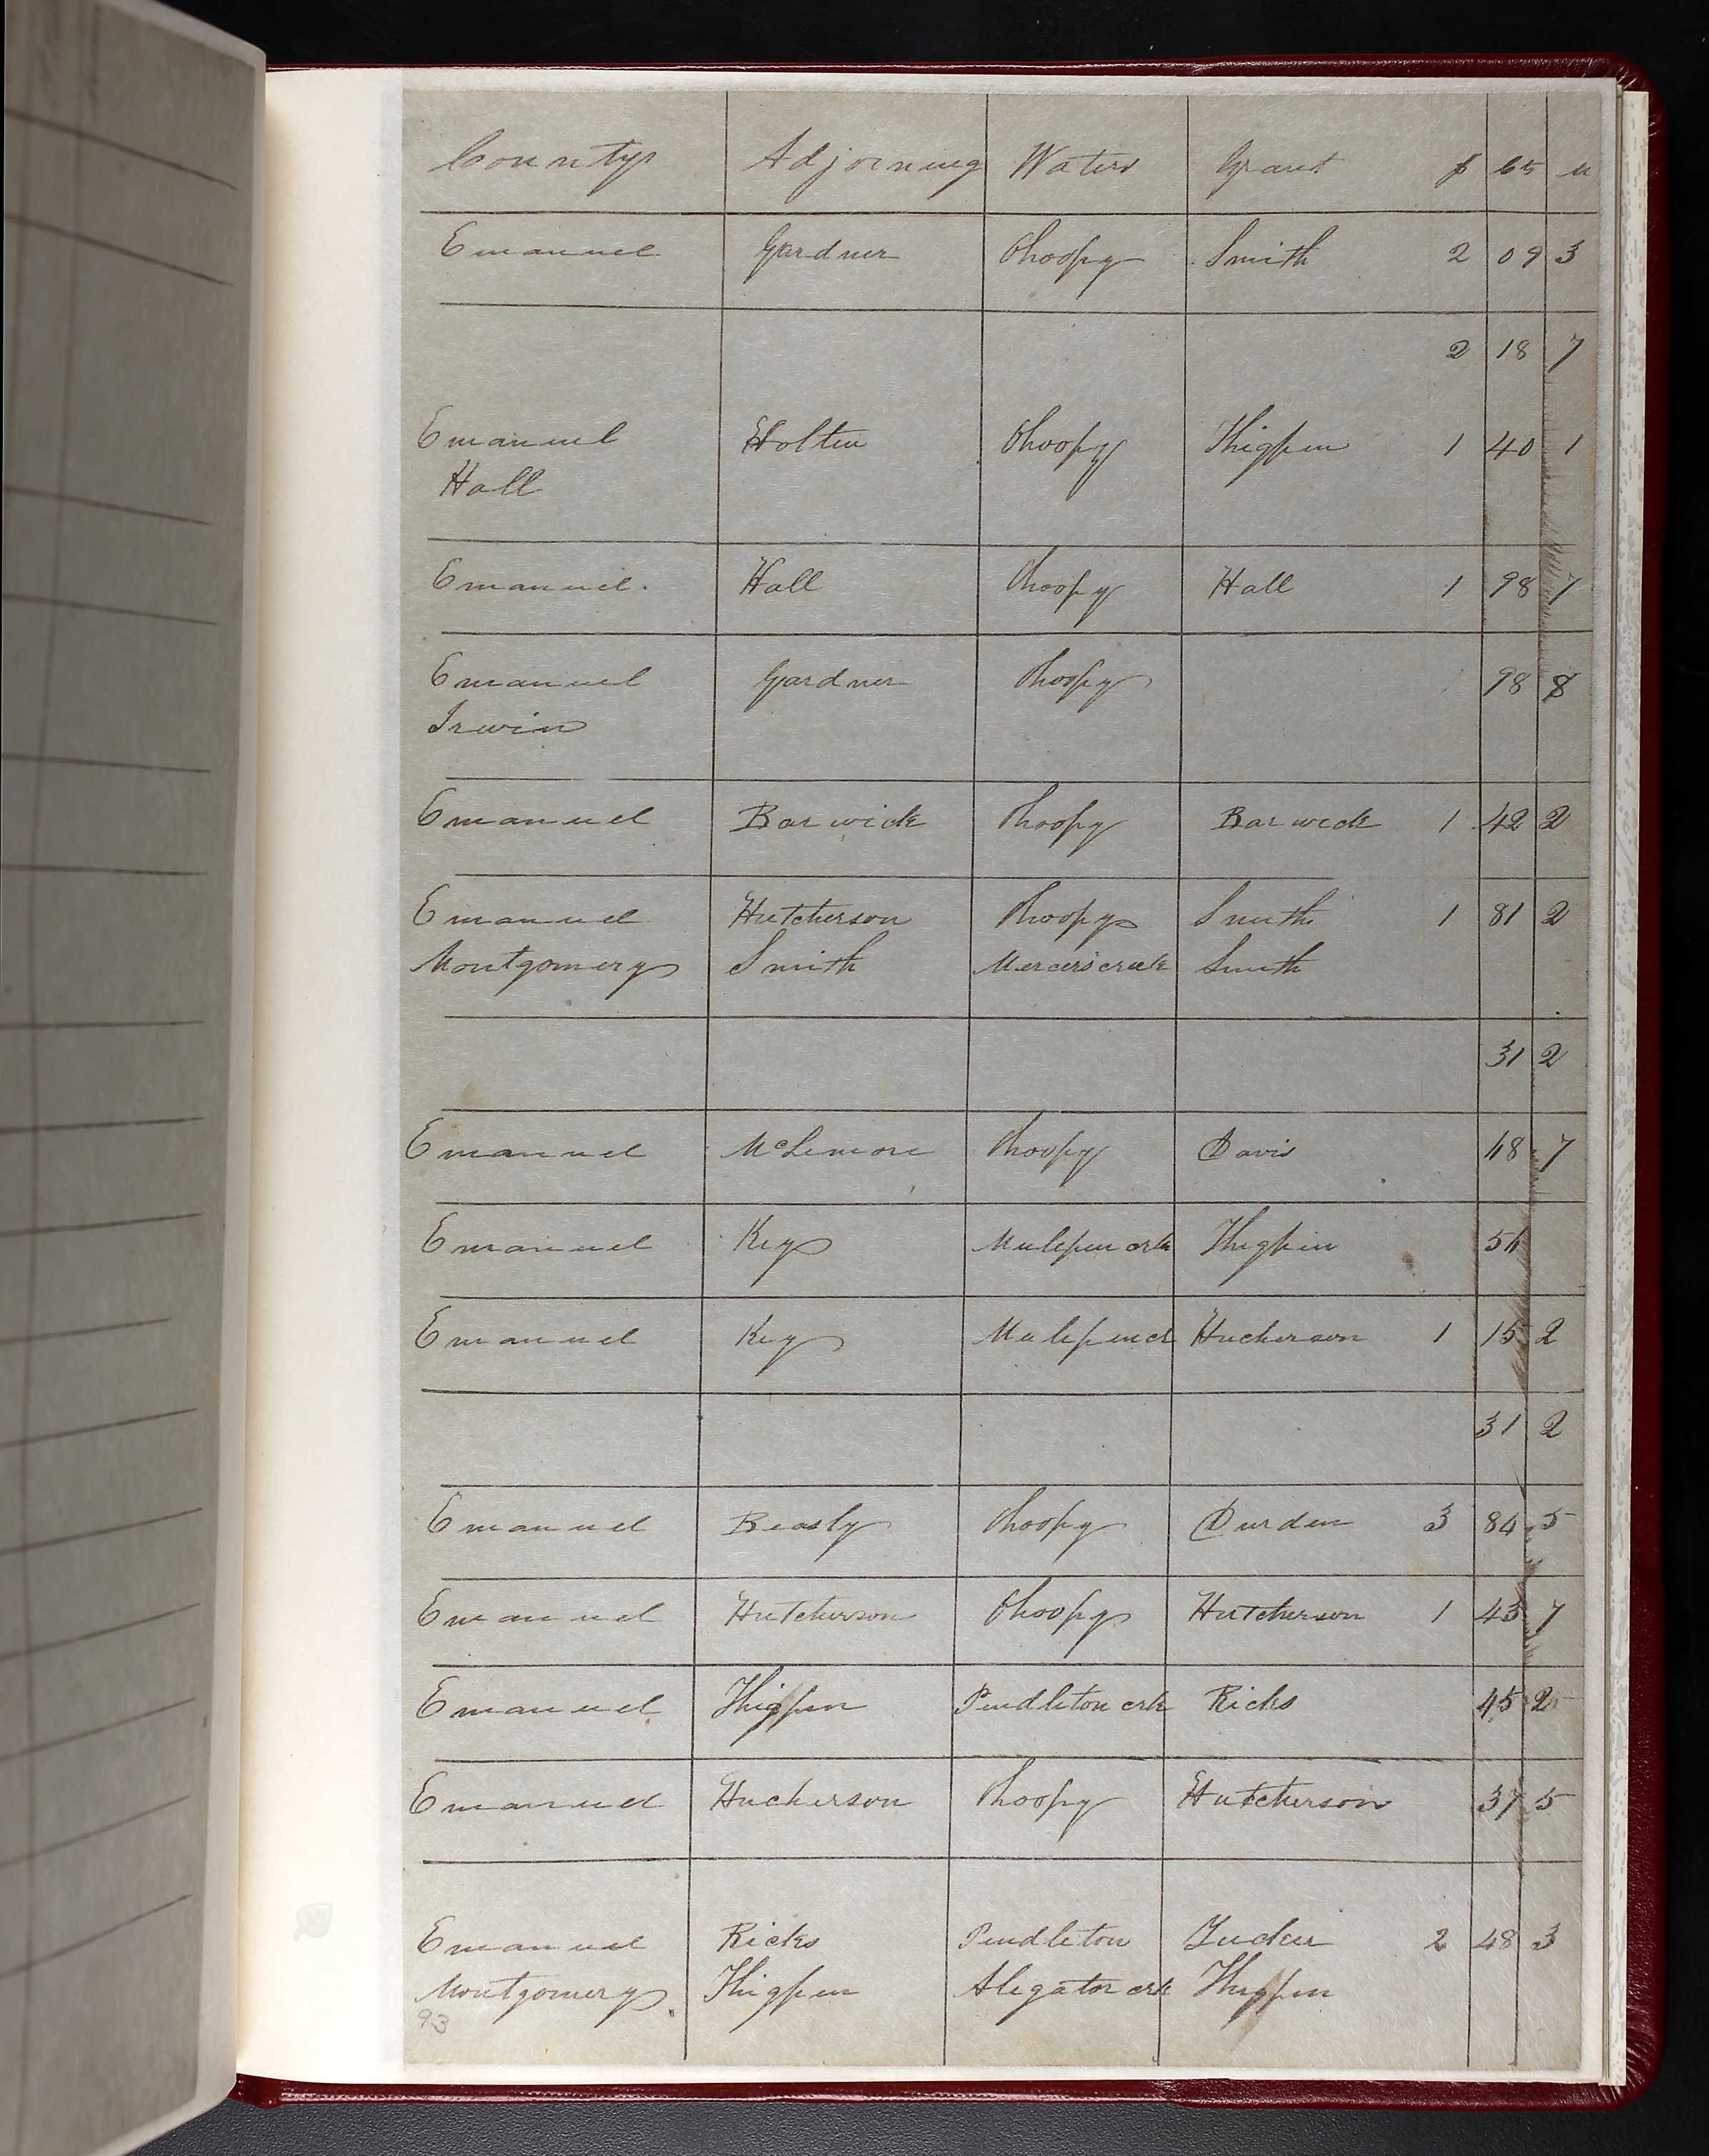 County Adjoining Waters Grant $ cts m
Emanuel Gardner Ohoopy Smith 2 09 3
2 18 7
Emanuel Holten Ohoopy Thigpen 1 40 1
Hall
Emanuel Hall Ohoopy Hall 1 98 7
Emanuel Gardner Ohoopy 98 8
Irwin
Emanuel Barwick Ohoopy Barwick 1 42 2
Emanuel Hutcherson Ohoopy Smith 1 81 2
Montgomery Smith Mercers creek Smith
31 2
Emanuel McLemore Ohoopy Davis 7
Emanuel Key Mulepen crk Thigpin
Emanuel Key Mulepen ck Hucherson 1 15 2
31 2
Emanuel Beasly Ohoopy Durden 3 84 5
Emanuel Hutcherson Ohoopy Hutcherson 1 43 7
Emanuel Thigpen Pendleton crk Ricks 45 2
Emanuel Hucherson Ohoopy Hutcherson 37 5
Emanuel Ricks Pendleton Tucker 2 48 3
Montgomery Thigpen Aligator crk Thigpin
93